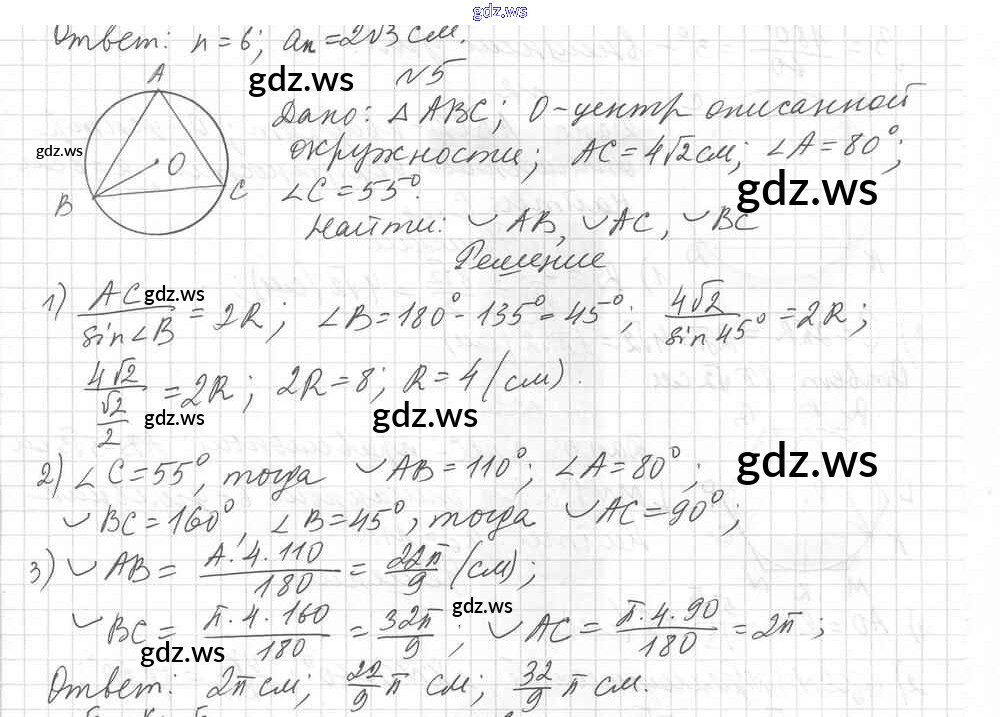 gdz.ws
Ответ: n=6; aₙ=2√3 см.
gdz.ws
N5
A
Дано: △ABC; O-центр описанной
окружности; AC=4√2 см; ∠A=80°;
gdz.ws
O
gdz.ws
B
C
∠C=55°.
Найти: ◡AB, ◡AC, ◡BC
Решение
1) AC/sin∠B = 2R; ∠B=180°-135°=45°; 4√2/sin45° = 2R;
gdz.ws
4√2/(√2/2) = 2R; 2R=8; R=4 (см).
gdz.ws
gdz.ws
gdz.ws
2) ∠C=55°, тогда ◡AB=110°; ∠A=80°;
◡BC=160°, ∠B=45°, тогда ◡AC=90°;
3) ◡AB = π·4·110/180 = 22π/9 (см);
gdz.ws
◡BC = π·4·160/180 = 32π/9; ◡AC = π·4·90/180 = 2π;
gdz.ws
Ответ: 2π см; 22/9 π см; 32/9 π см.